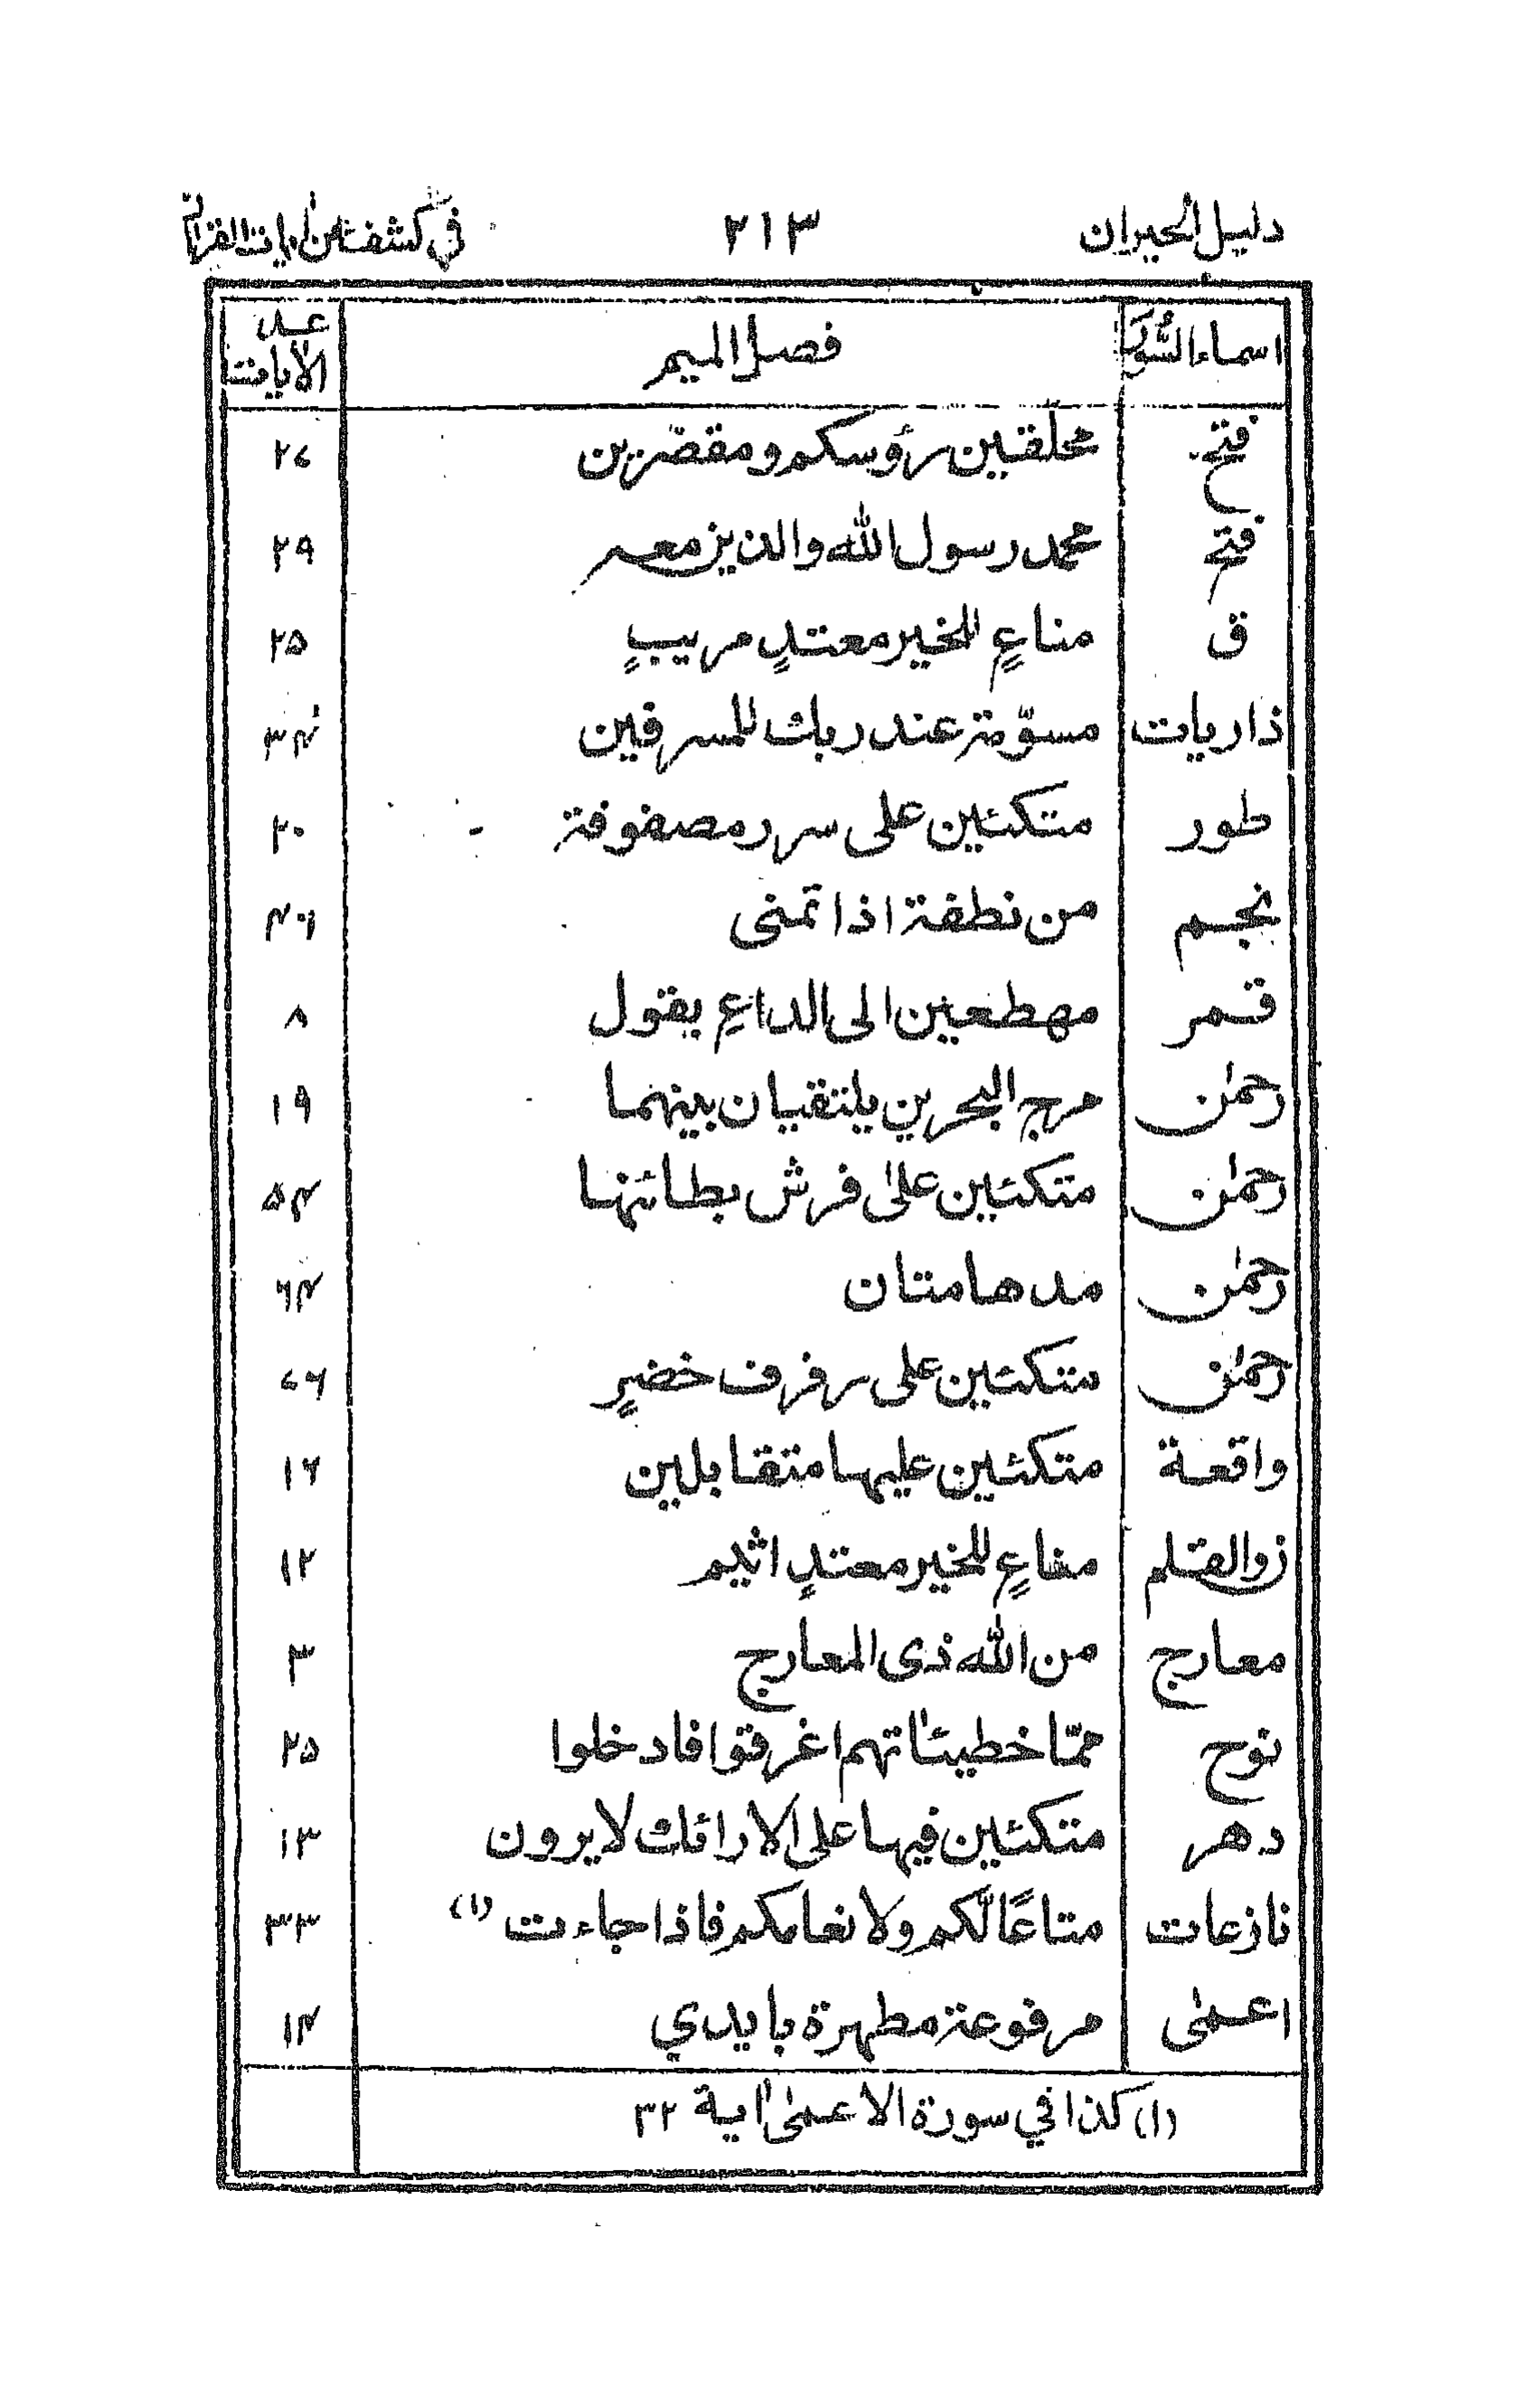 دليل الحيران ٢١٣ في كشف
اسماء السُّوَر فصل الميم عدد الأيات
فتح محلقين رؤسكم ومقصّرين ٢٧
فتح محمد رسول الله والذين معه ٢٩
ق مناعٍ للخير معتدٍ مريبٍ ٢٥
ذاريات مسوّمة عند ربك للمسرفين ٣٤
طور متكئين على سرر مصفوفة ٢٠
نجم من نطفة اذا تمنى ٤٦
قمر مهطعين الى الداعِ يقول ٨
رحمٰن مرج البحرين يلتقيان بينهما ١٩
رحمٰن متكئين علىٰ فرش بطائنها ٥٤
رحمٰن مدهامتان ٦٤
رحمٰن متكئين على رفرف خضرٍ ٧٦
واقعة متكئين عليها متقابلين ١٦
ن والقلم مناعٍ للخير معتدٍ اثيم ١٢
معارج من الله ذى المعارج ٣
نوح ممّا خطيئاتهم اغرقوا فادخلوا ٢٥
دهر متكئين فيها على الارائك لا يرون ١٣
نازعات متاعًا لّكم ولانعامكم فاذا جاءت (١) ٣٣
اعمٰى مرفوعة مطهرة بايدي ١٤
(١) كذا في سورة الاعمٰى اٰية ٣٢